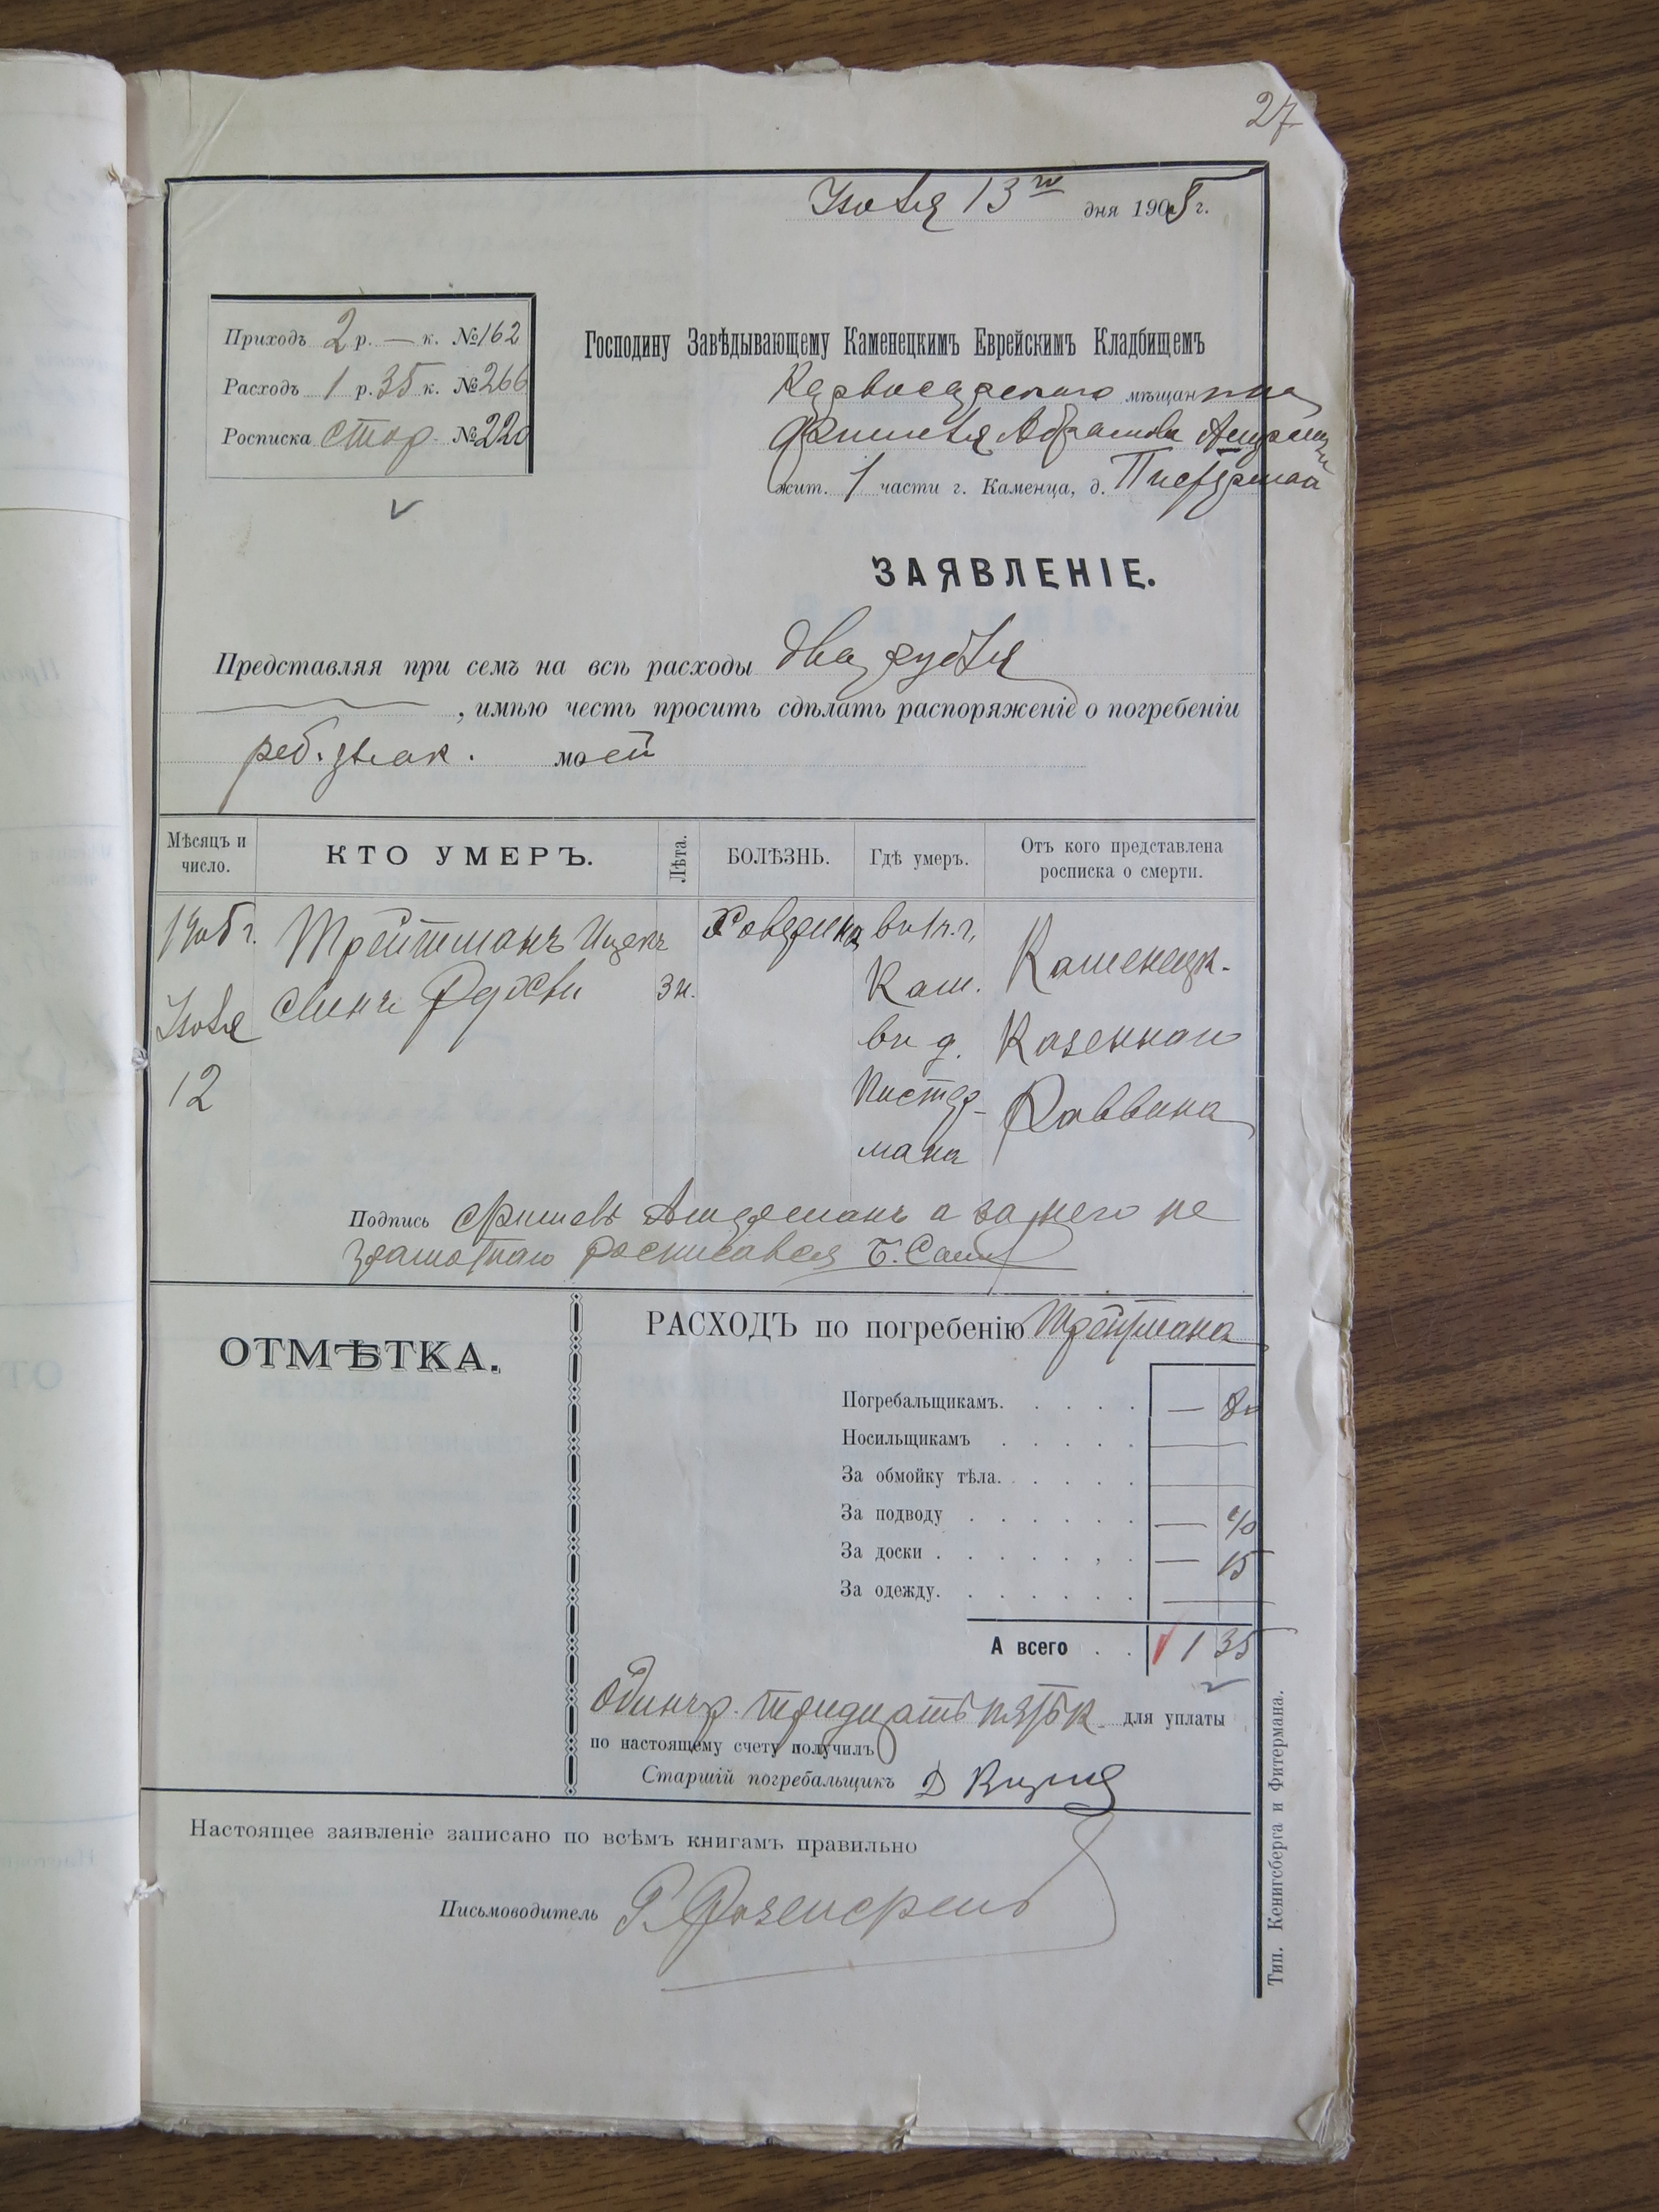 27
Іюля 13го дня 1905 г.
Приходъ 2 р. — к. № 162
Расходъ 1 р. 35 к. № 266
Росписка стор. № 220
Господину Завѣдывающему Каменецкимъ Еврейскимъ Кладбищемъ
мѣщанина
Абрамова
жит. 1 части г. Каменца, д. Пистермана
ЗАЯВЛЕНІЕ.
Представляя при семъ на всѣ расходы два рубля
, имѣю честь просить сдѣлать распоряженіе о погребеніи
реб. моей
Мѣсяцъ и число.
КТО УМЕРЪ.
Лѣта.
БОЛѢЗНЬ.
Гдѣ умеръ.
Отъ кого представлена росписка о смерти.
1905 г.
Іюля
12
Тройтманъ Ицекъ
сынъ
3 н.
въ 1 ч. г.
Кам.
въ д.
Пистер-
мана
Каменецк.
Казеннаго
Раввина
Подпись а за него не
грамотнаго росписался
ОТМѢТКА.
РАСХОДЪ по погребенію Тройтмана
Погребальщикамъ. — 80
Носильщикамъ
За обмойку тѣла.
За подводу — 40
За доски — 15
За одежду.
А всего 1 35
Одинъ р. тридцать пять к. для уплаты
по настоящему счету получилъ
Старшій погребальщикъ Д
Настоящее заявленіе записано по всѣмъ книгамъ правильно
Письмоводитель
Тип. Кенигсберга и Фитермана.